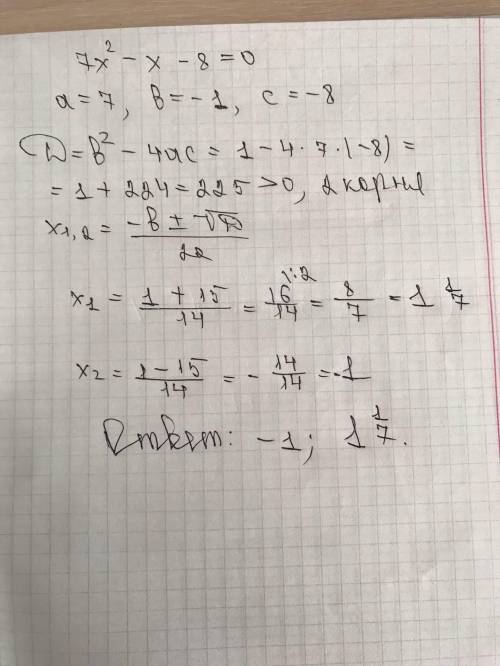 7x² - x - 8 = 0
a = 7, в = - 1, c = - 8
D = в² - 4ac = 1 - 4 · 7 · (-8) =
= 1 + 224 = 225 > 0, 2 корня
x1,2 = (-в ± √D)/2a
x1 = (1 + 15)/14 = 16/14 |:2 = 8/7 = 1 1/7
x2 = (1 - 15)/14 = - 14/14 = -1
Ответ: -1; 1 1/7.